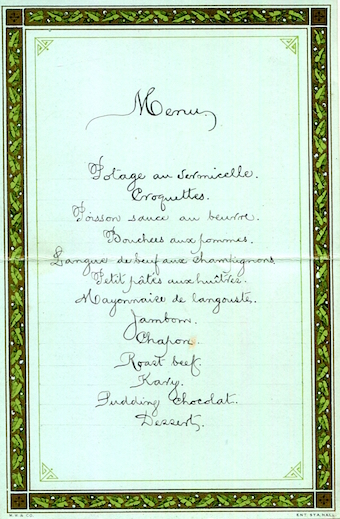 Menu
Potage au vermicelle.
Croquettes.
Poisson sauce au beurre.
Bouchees aux pommes.
Langue de beuf aux champignons
Petit pâtes aux huîtres.
Mayonnaise de langouste.
Jambom.
Chapon.
Roast beef.
Kary.
Pudding chocolat.
Dessert.
ENT. STA. HALL